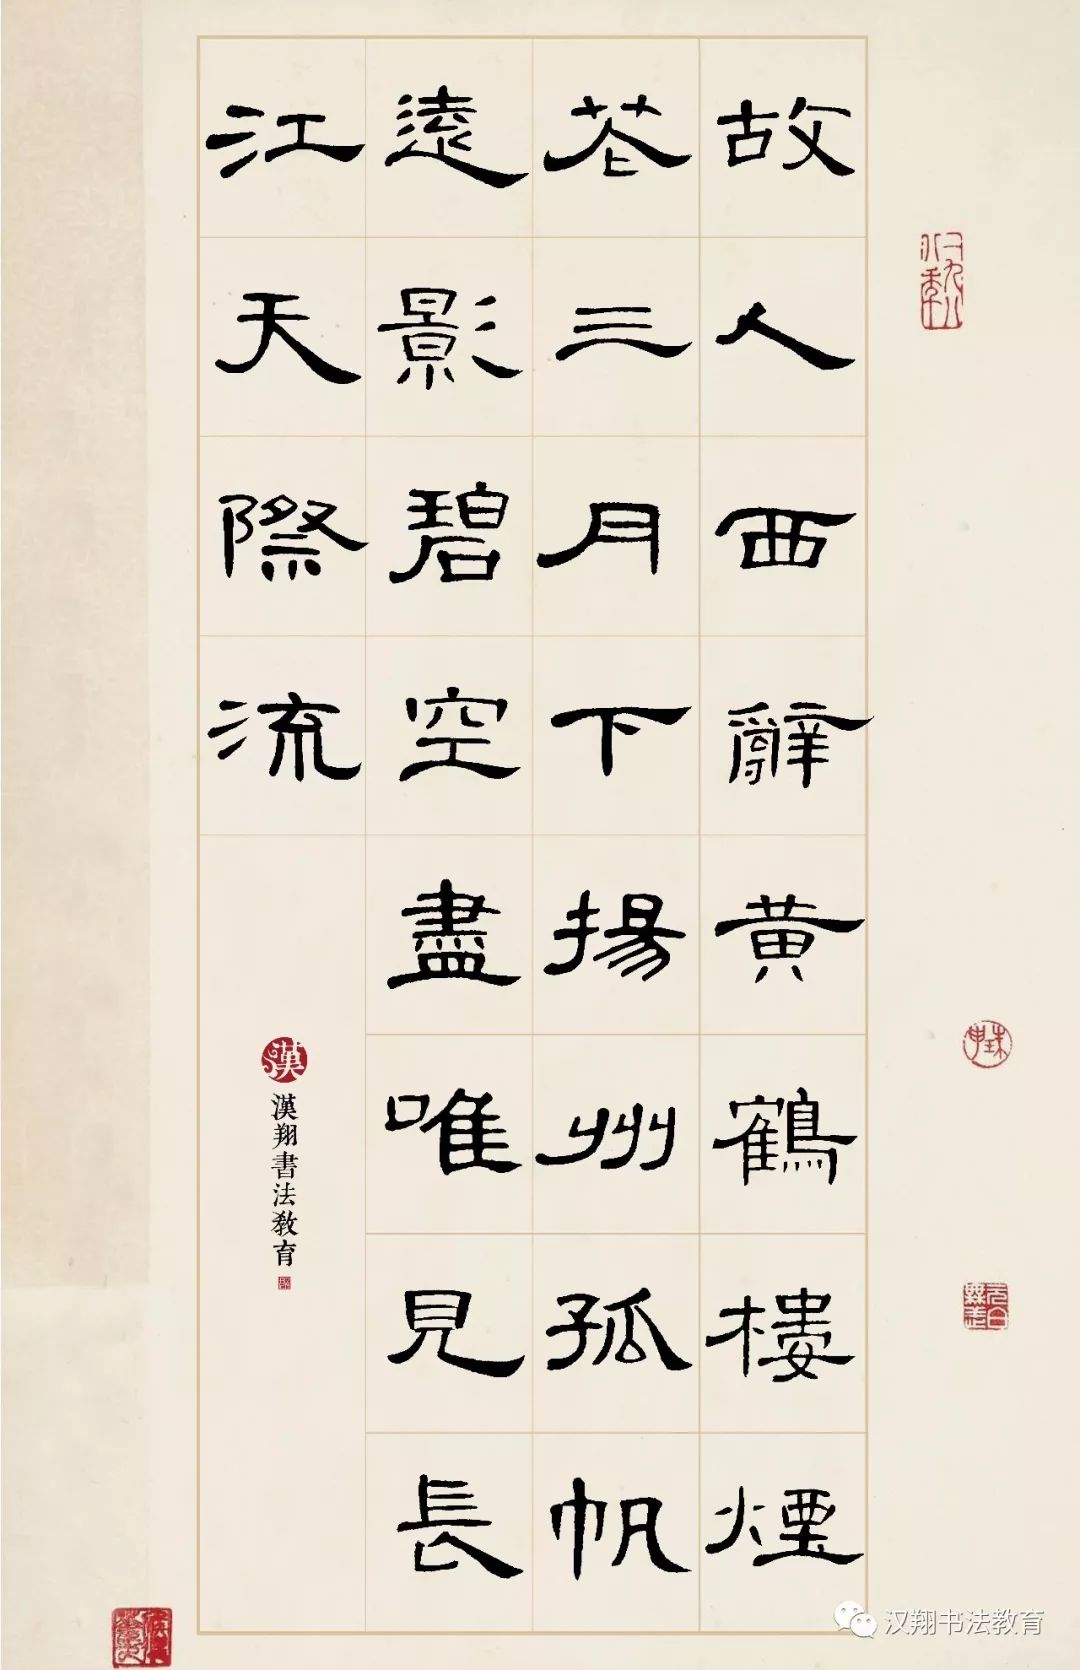 故人西辭黄鶴樓煙
花三月下揚州孤帆
遠影碧空盡唯見長
江天際流
漢
漢翔書法教育
汉翔书法教育